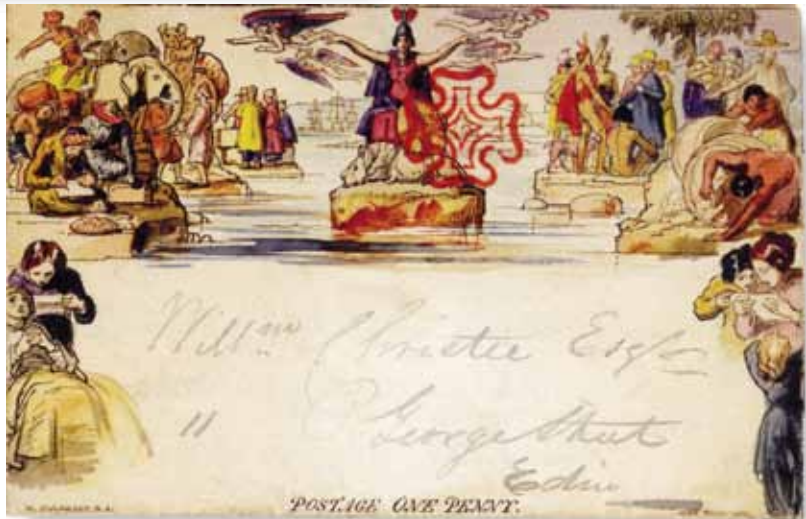 Willm Christie Esqr
11 George Street
Edinr
W. MULREADY. R.A.
POSTAGE ONE PENNY.